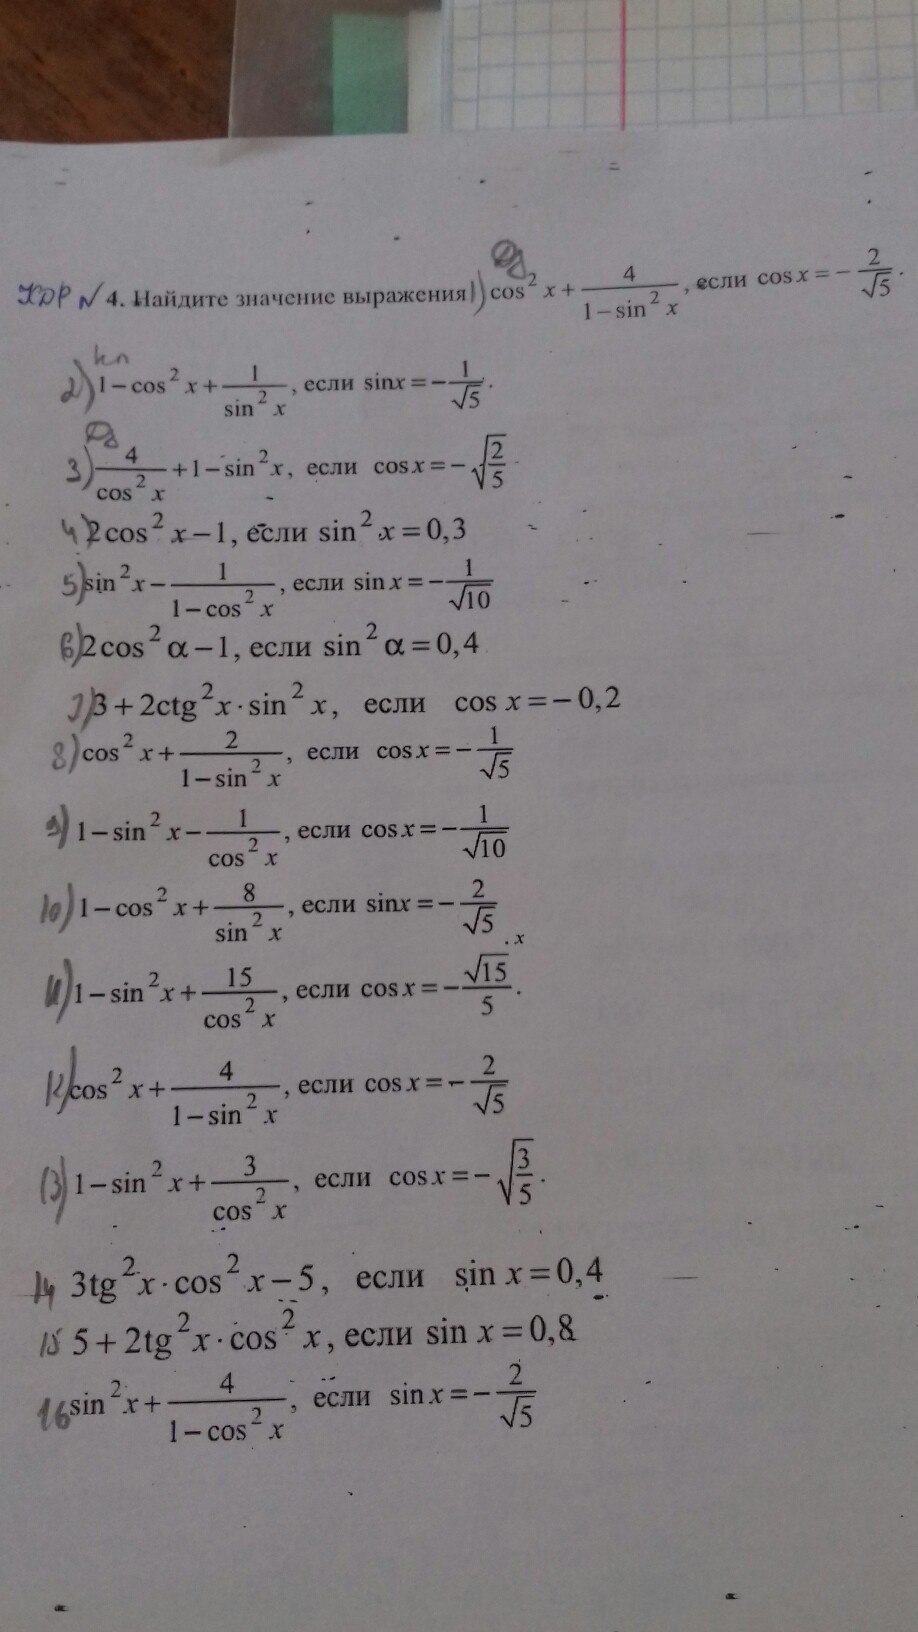 КДР №4. Найдите значение выражения 1) cos² x + 4/(1−sin² x), если cos x = −2/√5.
2) 1−cos² x + 1/sin² x, если sinx = −1/√5.
3) 4/cos² x + 1−sin² x, если cos x = −√(2/5)
4) 2cos² x − 1, если sin² x = 0,3
5) sin² x − 1/(1−cos² x), если sin x = −1/√10
6) 2cos² α − 1, если sin² α = 0,4
7) 3 + 2ctg² x · sin² x, если cos x = −0,2
8) cos² x + 2/(1−sin² x), если cos x = −1/√5
9) 1−sin² x − 1/cos² x, если cos x = −1/√10
10) 1−cos² x + 8/sin² x, если sinx = −2/√5
11) 1−sin² x + 15/cos² x, если cos x = −√15/5.
12) cos² x + 4/(1−sin² x), если cos x = −2/√5
13) 1−sin² x + 3/cos² x, если cos x = −√(3/5).
14 3tg² x · cos² x − 5, если sin x = 0,4
15 5 + 2tg² x · cos² x, если sin x = 0,8
16 sin² x + 4/(1−cos² x), если sin x = −2/√5